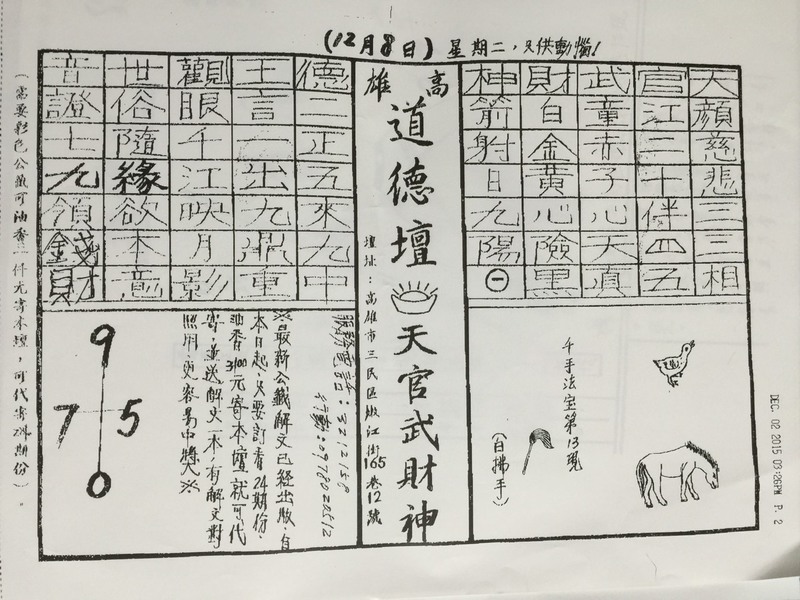 (12月8日)星期二,只供動惱!
天顏慈悲三三相
官江三十伴四五
武童赤子心天真
財白金黃心險黑
神箭射日九陽㊀
千手法宝第13現
(白拂手)
高雄
道德壇 天官武財神
壇址:高雄市三民區嫩江街165巷12號
德二正五來九中
王言一出九鼎重
觀眼千江映月影
世俗隨緣欲本意
音證七九領錢財
服務電話:3212158
行動:0978020512
※最新公籤解文已經出版,自
本日起,只要訂看24期份,
油香3100元寄本壇就可代
寄,並送解文一本,有解文對
照用,更容易中獎※
9
7 5
0
(需要彩色公籤可油香三仟元寄本壇,可代寄 期份)。
DEC. 02 2015 03:26PM P. 2